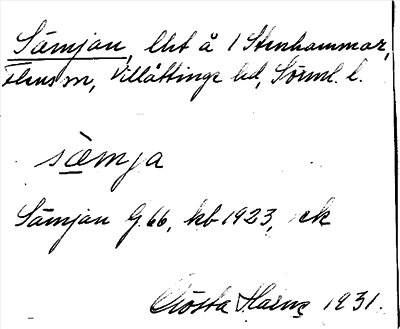 Sämjan, lht å 1 Stenhammar,
Flens sn, Villåttinge hd, Sörml. l.
sämja
Sämjan G.66, kb 1923, ek
Gösta Harne 1931.